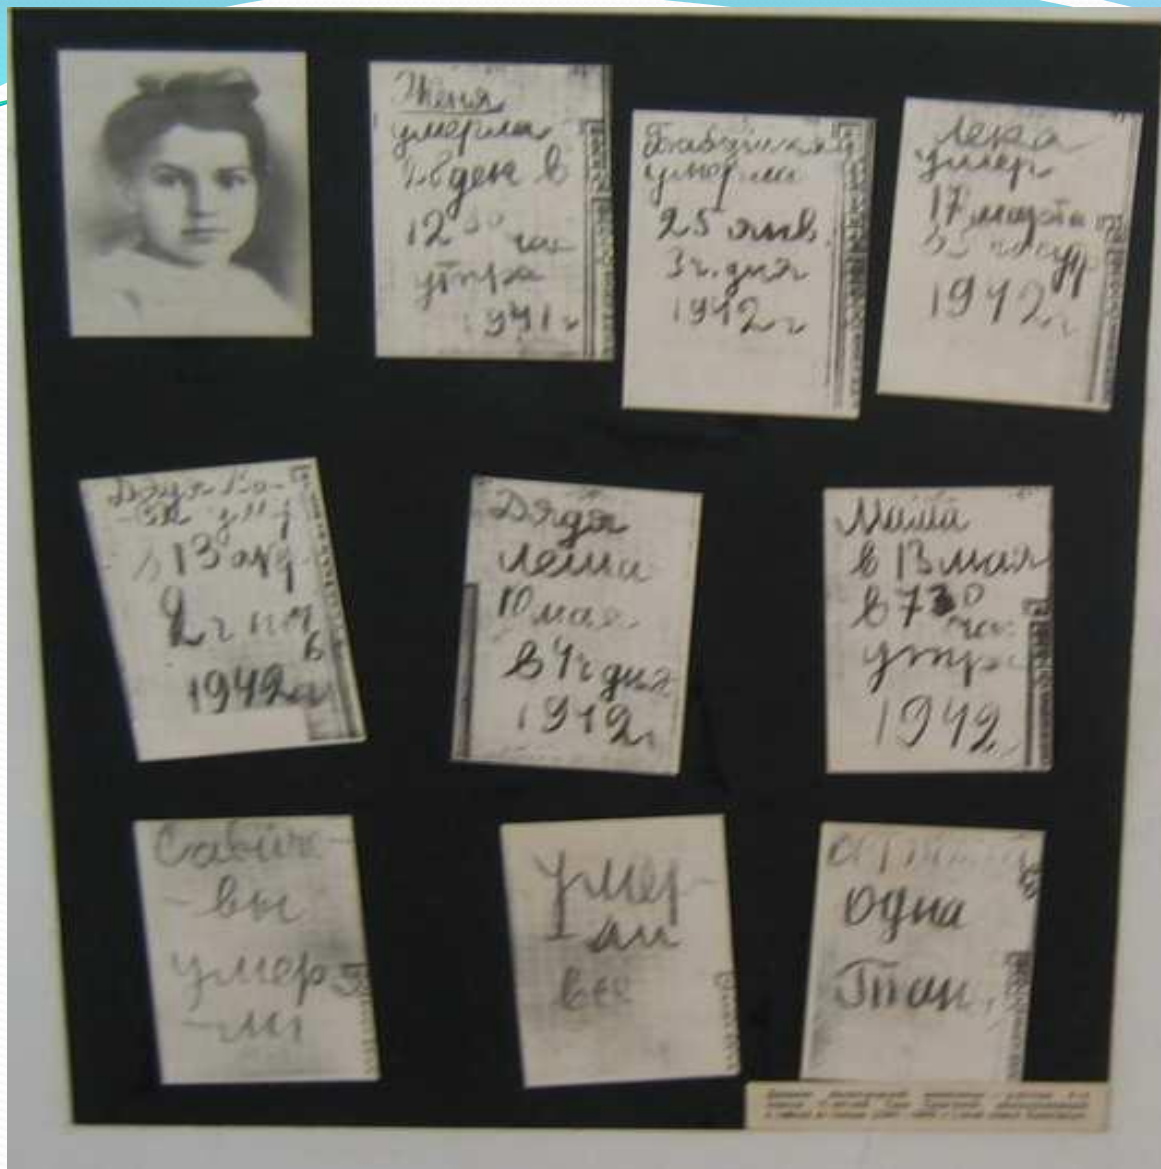 Женя
умерла
28 дек в
12 00 час
утра
1941 г
Бабушка
умерла
25 янв.
3 ч. дня
1942 г
Лека
умер
17 марта
в 5 час ут
1942 г
Дядя Ва-
ся ум
в 13 апр
2 ч ноч
1942 г
Дядя
Леша
10 мая
в 4 ч дня
1942 г
Мама
в 13 мая
в 7 30 час
утра
1942
Савиче-
-вы
умер
-ли
Умер-
-ли
все
Осталась
одна
Таня